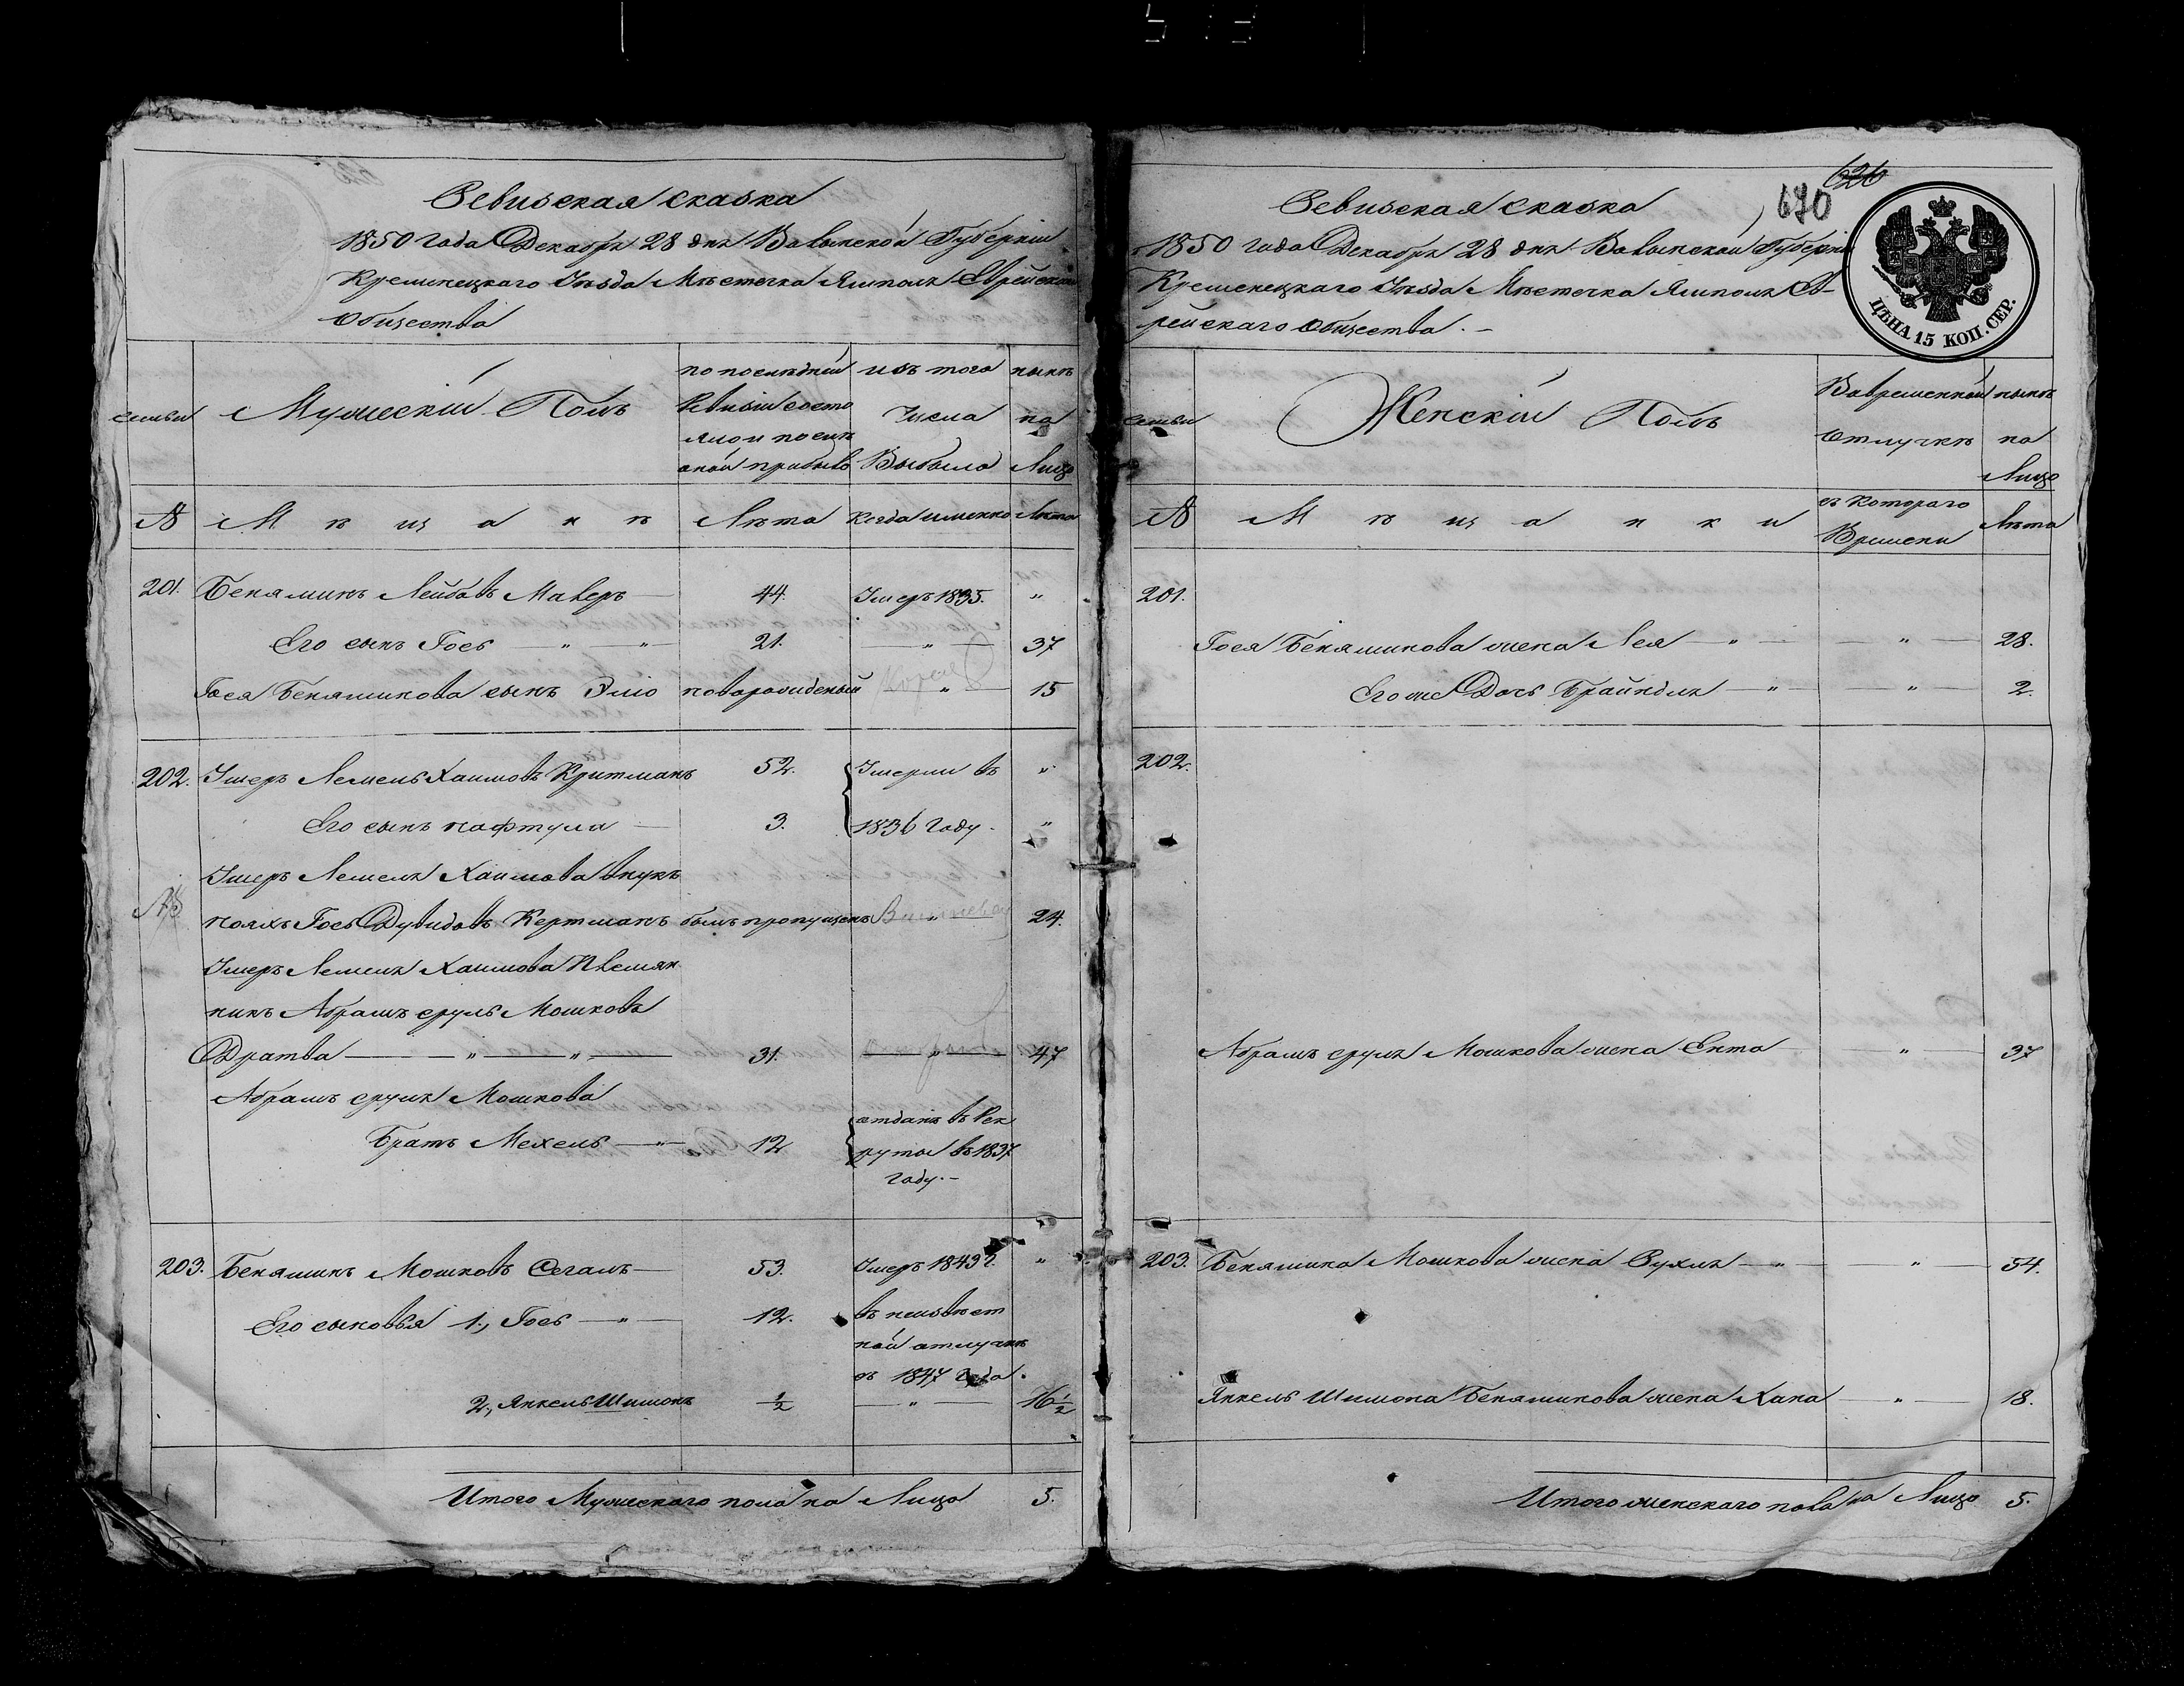 Ревизская сказка
1850 года Декабря 28 дня Валынской Губерніи
Кременецкаго Уѣзда Мѣстечка Ямполя Еврейскаго
Общества
семьи
Мужескій Полъ
по послѣдней
Ревизіи состо
яло и послѣ
оной прибыло
изъ того
Числа
Выбыло
нынѣ
на
Лицо
№
Мѣщане
Лѣта
Когда именно
Лѣта
201. Беняминъ Лейбовъ Малеръ 44. Умеръ 1835. „
Его сынъ Гось „ „ 21. „ 37
Гося Беняминова сынъ Элio новорожденый „ 15
202. Умеръ Лемель Хаимовъ Критманъ 52. Умерли въ „
Его сынъ Нафтула 3. 1836 Году. „
Умеръ Лемеля Хаимова внукъ
Гось Дувидовъ Кертманъ былъ пропущенъ „ 24.
Умеръ Лемеля Хаимова Племян
никъ Абрамъ сруль Мошковъ
Дратва „ „ 31. „ 47
Абрамъ сруля Мошкова
Братъ Мехель „ 12
отданъ въ Рек
руты въ 1837
Году.
203. Беняминъ Мошковъ Сегалъ 53. Умеръ 1843 г. „
Его сыновья 1., Гось „ 12. въ неизвѣст
ной отлучкѣ
съ 1847 Года.
2., Янкель Шимонъ ½ „ 16½
Итого Мужескаго пола на Лицо 5.
626
670
Ревизская сказка
1850 года Декабря 28 дня Валынской Губерніи
Кременецкаго Уѣзда Мѣстечка Ямполя Ев-
рейскаго Общества.
ЦѢНА 15 КОП. СЕР.
семьи
Женскій Полъ
Вовременной
отлучкѣ
нынѣ
на
Лицо
№
Мѣщанки
съ Котораго
Времени
Лѣта
201.
Гося Беняминова жена Лея „ „ 28.
Его же Дочь Брайндля „ „ 2.
202.
Абрамъ сруля Мошкова жена Ента „ 37
203. Бенямина Мошкова жена Рухля „ „ 54.
Янкель Шимона Беняминова жена Хана „ 18.
Итого женскаго пола на Лицо 5.